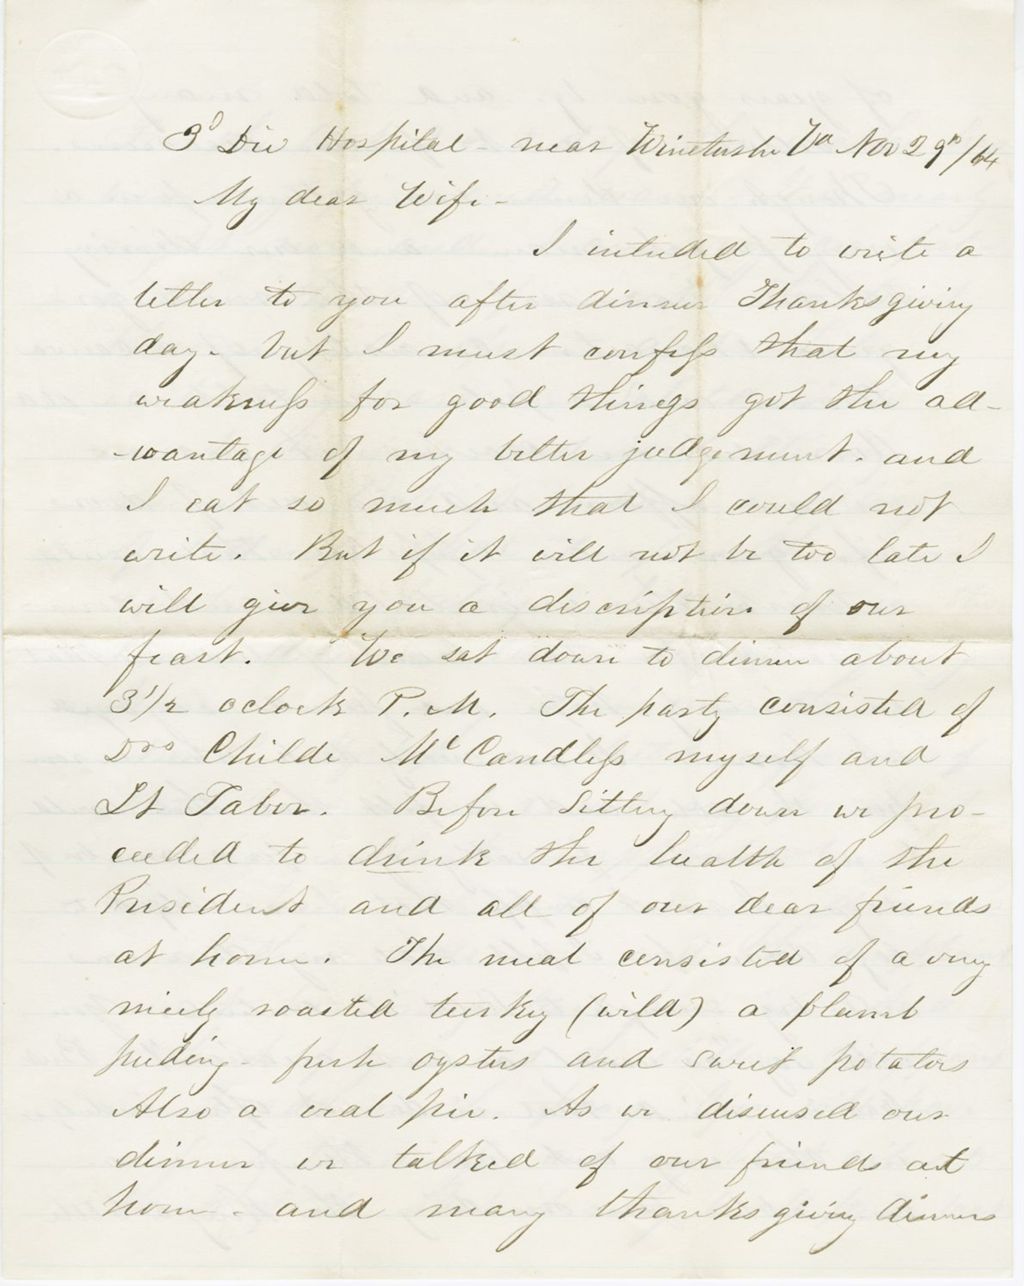 3d Div Hospital - near Winchester Va Nov 29th/64
My dear Wife -
I intended to write a
letter to you after dinner Thanksgiving
day - but I must confess that my
weakness for good things got the ad-
-vantage of my better judgement - and
I eat so much that I could not
write. But if it will not be too late I
will give you a discription of our
feast. We sat down to dinner about
3 1/2 oclock P.M. The party consisted of
Drs Childe McCandless myself and
Lt Tabor. Before Sitting down we pro-
ceeded to drink the health of the
President and all of our dear friends
at home. The meal consisted of a very
nicely roasted turkey (wild) a plumb
puding - fresh oysters and sweet potatoes
Also a veal pie. As we discused our
dinner we talked of our friends at
home - and many thanksgiving dinners